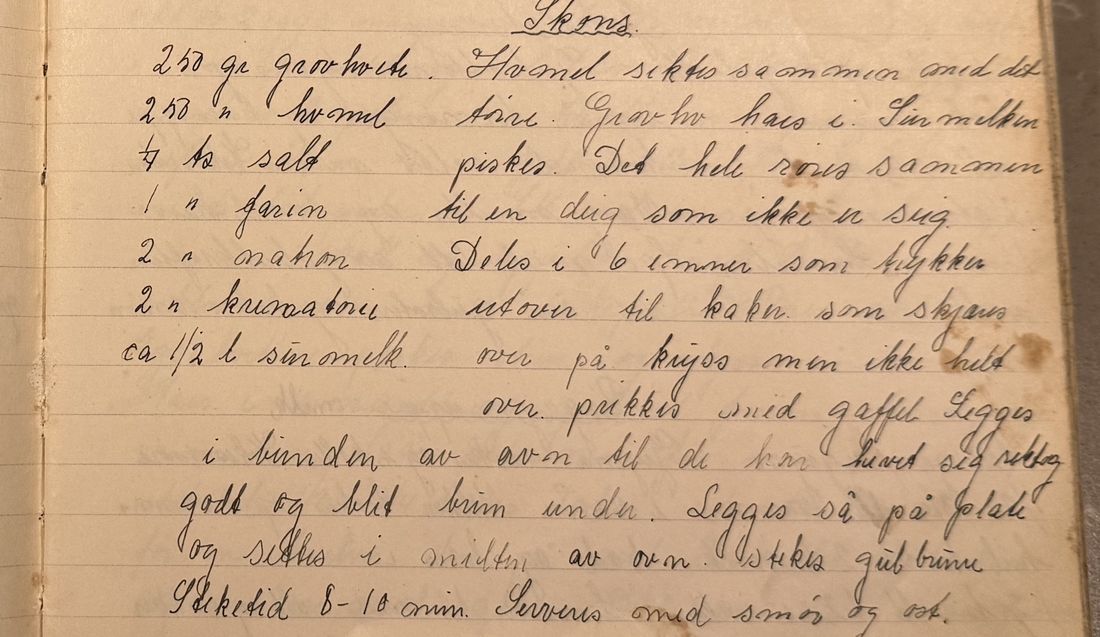 Skons.
250 gr grovhvete. Hvmel siktes sammen med det
250 " hvmel tørre. Grovhv haes i. Surmelken
1/4 ts salt piskes. Det hele røres sammen
1 " farin til en deig som ikke er seig.
2 " natron Deles i 6 emner som trykkes
2 " krematorie utover til kaker. som skjæres
ca 1/2 l surmelk. over på kryss men ikke helt
over. prikkes med gaffel Legges
i bunden av avn til de har hevet seg riktog
godt og blit brun under. Legges så på plate
og settes i midten av ovn. stekes gulbrune
Steketid 8-10 min. Serveres med smør og ost.